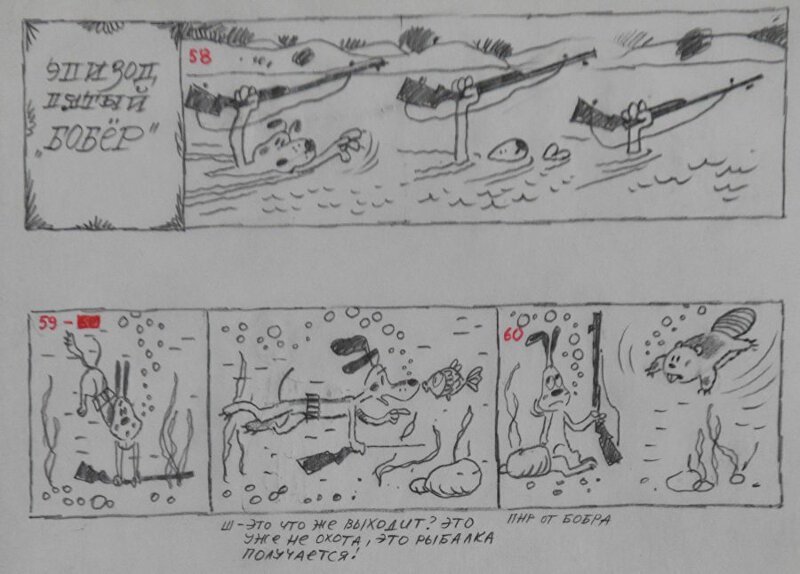 ЭПИЗОД
ПЯТЫЙ
„БОБЁР"
58
59 -
60
Ш-ЭТО ЧТО ЖЕ ВЫХОДИТ? ЭТО
УЖЕ НЕ ОХОТА, ЭТО РЫБАЛКА
ПОЛУЧАЕТСЯ!
ПНР ОТ БОБРА